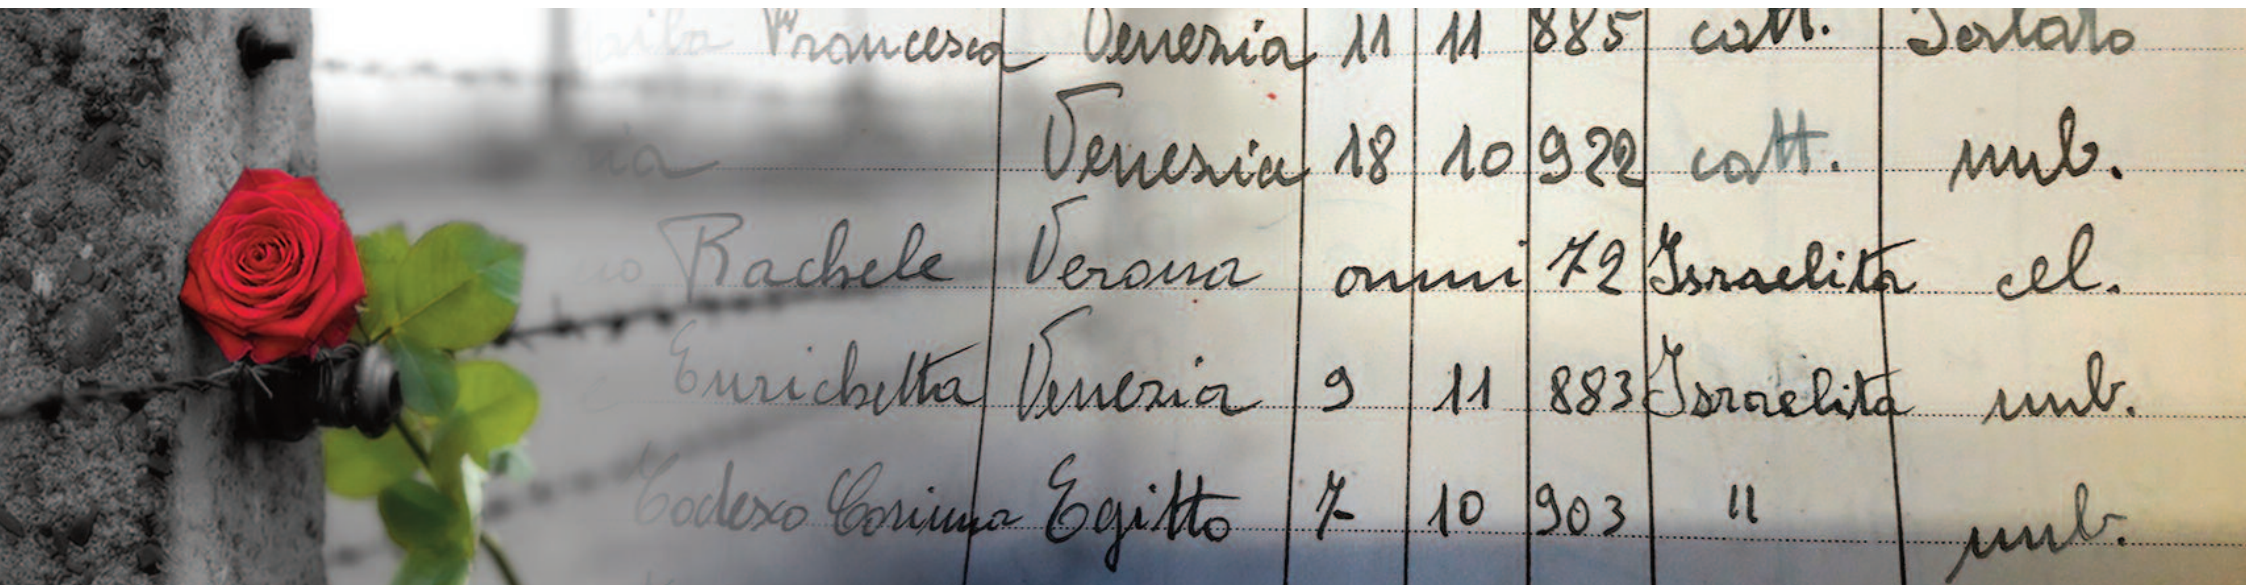 Francesca Venezia 11 11 885 catt.
Venezia 18 10 922 catt. nub.
Rachele Verona anni 72 Israelita cel.
Enrichetta Venezia 9 11 883 Israelita nub.
Todesco Corinna Egitto 7 10 903 " nub.